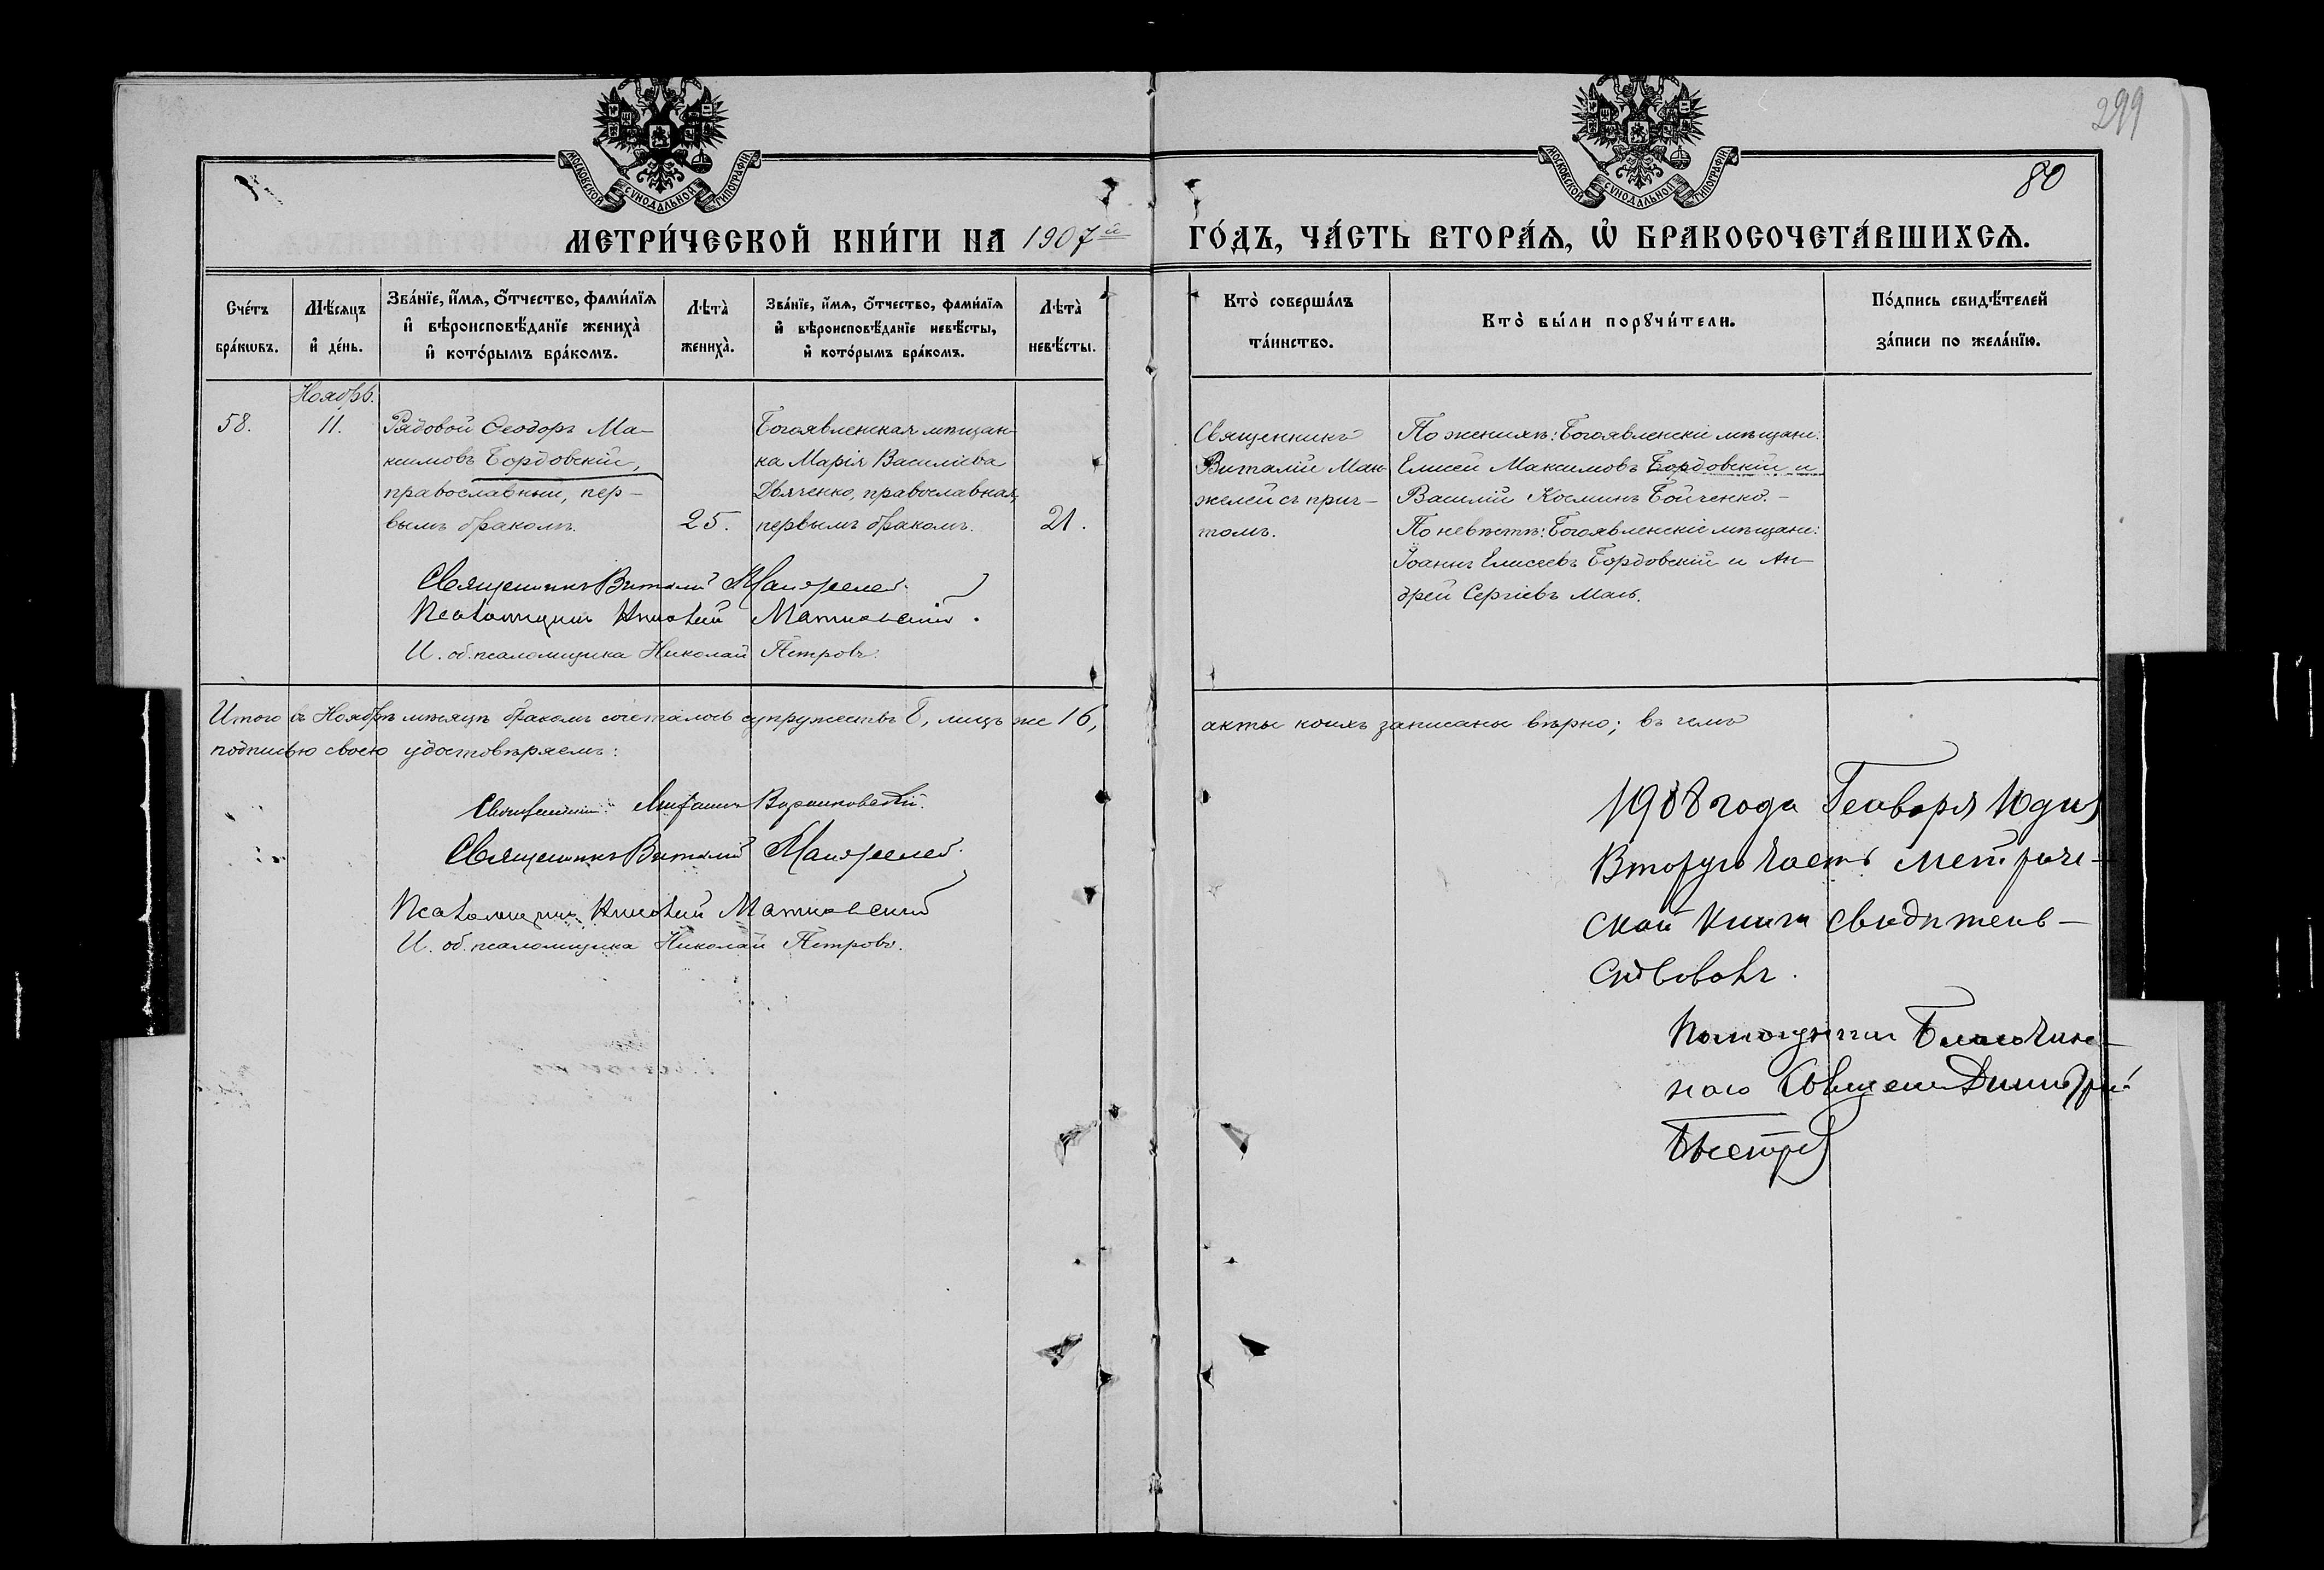 299
80
МОСКОВСКОЙ СѴНОДАЛЬНОЙ ТИПОГРАФІИ
МОСКОВСКОЙ СѴНОДАЛЬНОЙ ТИПОГРАФІИ
МЕТРИ́ЧЕСКОЙ КНИ́ГИ НА 1907й
ГО́ДЪ, ЧА́СТЬ ВТОРА́Ѧ, Ѡ҆ БРАКОСОЧЕТА́ВШИХСѦ.
Сче́тъ бра́кѡвъ.
Мѣ́сяцъ и҆ де́нь.
Зва́нїе, и҆́мѧ, ѻ҆́тчество, фами́лїѧ
и҆ вѣроисповѣ́данїе жениха̀
и҆ кото́рымъ бра́комъ.
Лѣта̀ жениха̀.
Зва́нїе, и҆́мѧ, ѻ҆́тчество, фами́лїѧ
и҆ вѣроисповѣ́данїе невѣ́сты,
и҆ кото́рымъ бра́комъ.
Лѣта̀ невѣ́сты.
Кто̀ соверша́лъ
та́инство.
Кто̀ бы́ли порꙋчи́тели.
По́дпись свидѣ́телей
за́писи по жела́нїю.
58.
Ноябрь.
11.
Рядовой Ѳеодоръ Ма-
ксимовъ Бордовскій,
православный, пер-
вымъ бракомъ.
25.
Богоявленская мѣщан-
ка Марія Василіева
Дьяченко, православная,
первымъ бракомъ.
21.
Священникъ
Виталій Ман-
желей съ прич-
томъ.
По женихѣ: Богоявленскіе мѣщане:
Елисей Максимовъ Бордовскій и
Василій Косминъ Бойченко. -
По невѣстѣ: Богоявленскіе мѣщане:
Іоаннъ Елисеевъ Бордовскій и Ан-
дрей Сергіевъ Маль.
Священникъ Виталій Манжелей.
Псаломщикъ Николай Матковскій.
И. об. псаломщика Николай Петровъ.
Итого въ Ноябрѣ мѣсяцѣ бракомъ сочеталось супружествъ 8, лицъ же 16,
акты коихъ записаны вѣрно; въ чемъ
подписью своею удостовѣряемъ:
Священникъ
Священникъ Виталій Манжелей.
Псаломщикъ Николай Матковскій
И. об. псаломщика Николай Петровъ.
1908 года Генваря 10 дня
Вторую часть метриче-
ской книги свидѣтель-
ствовалъ.
Помощникъ Благочин-
наго Священ Димитрій